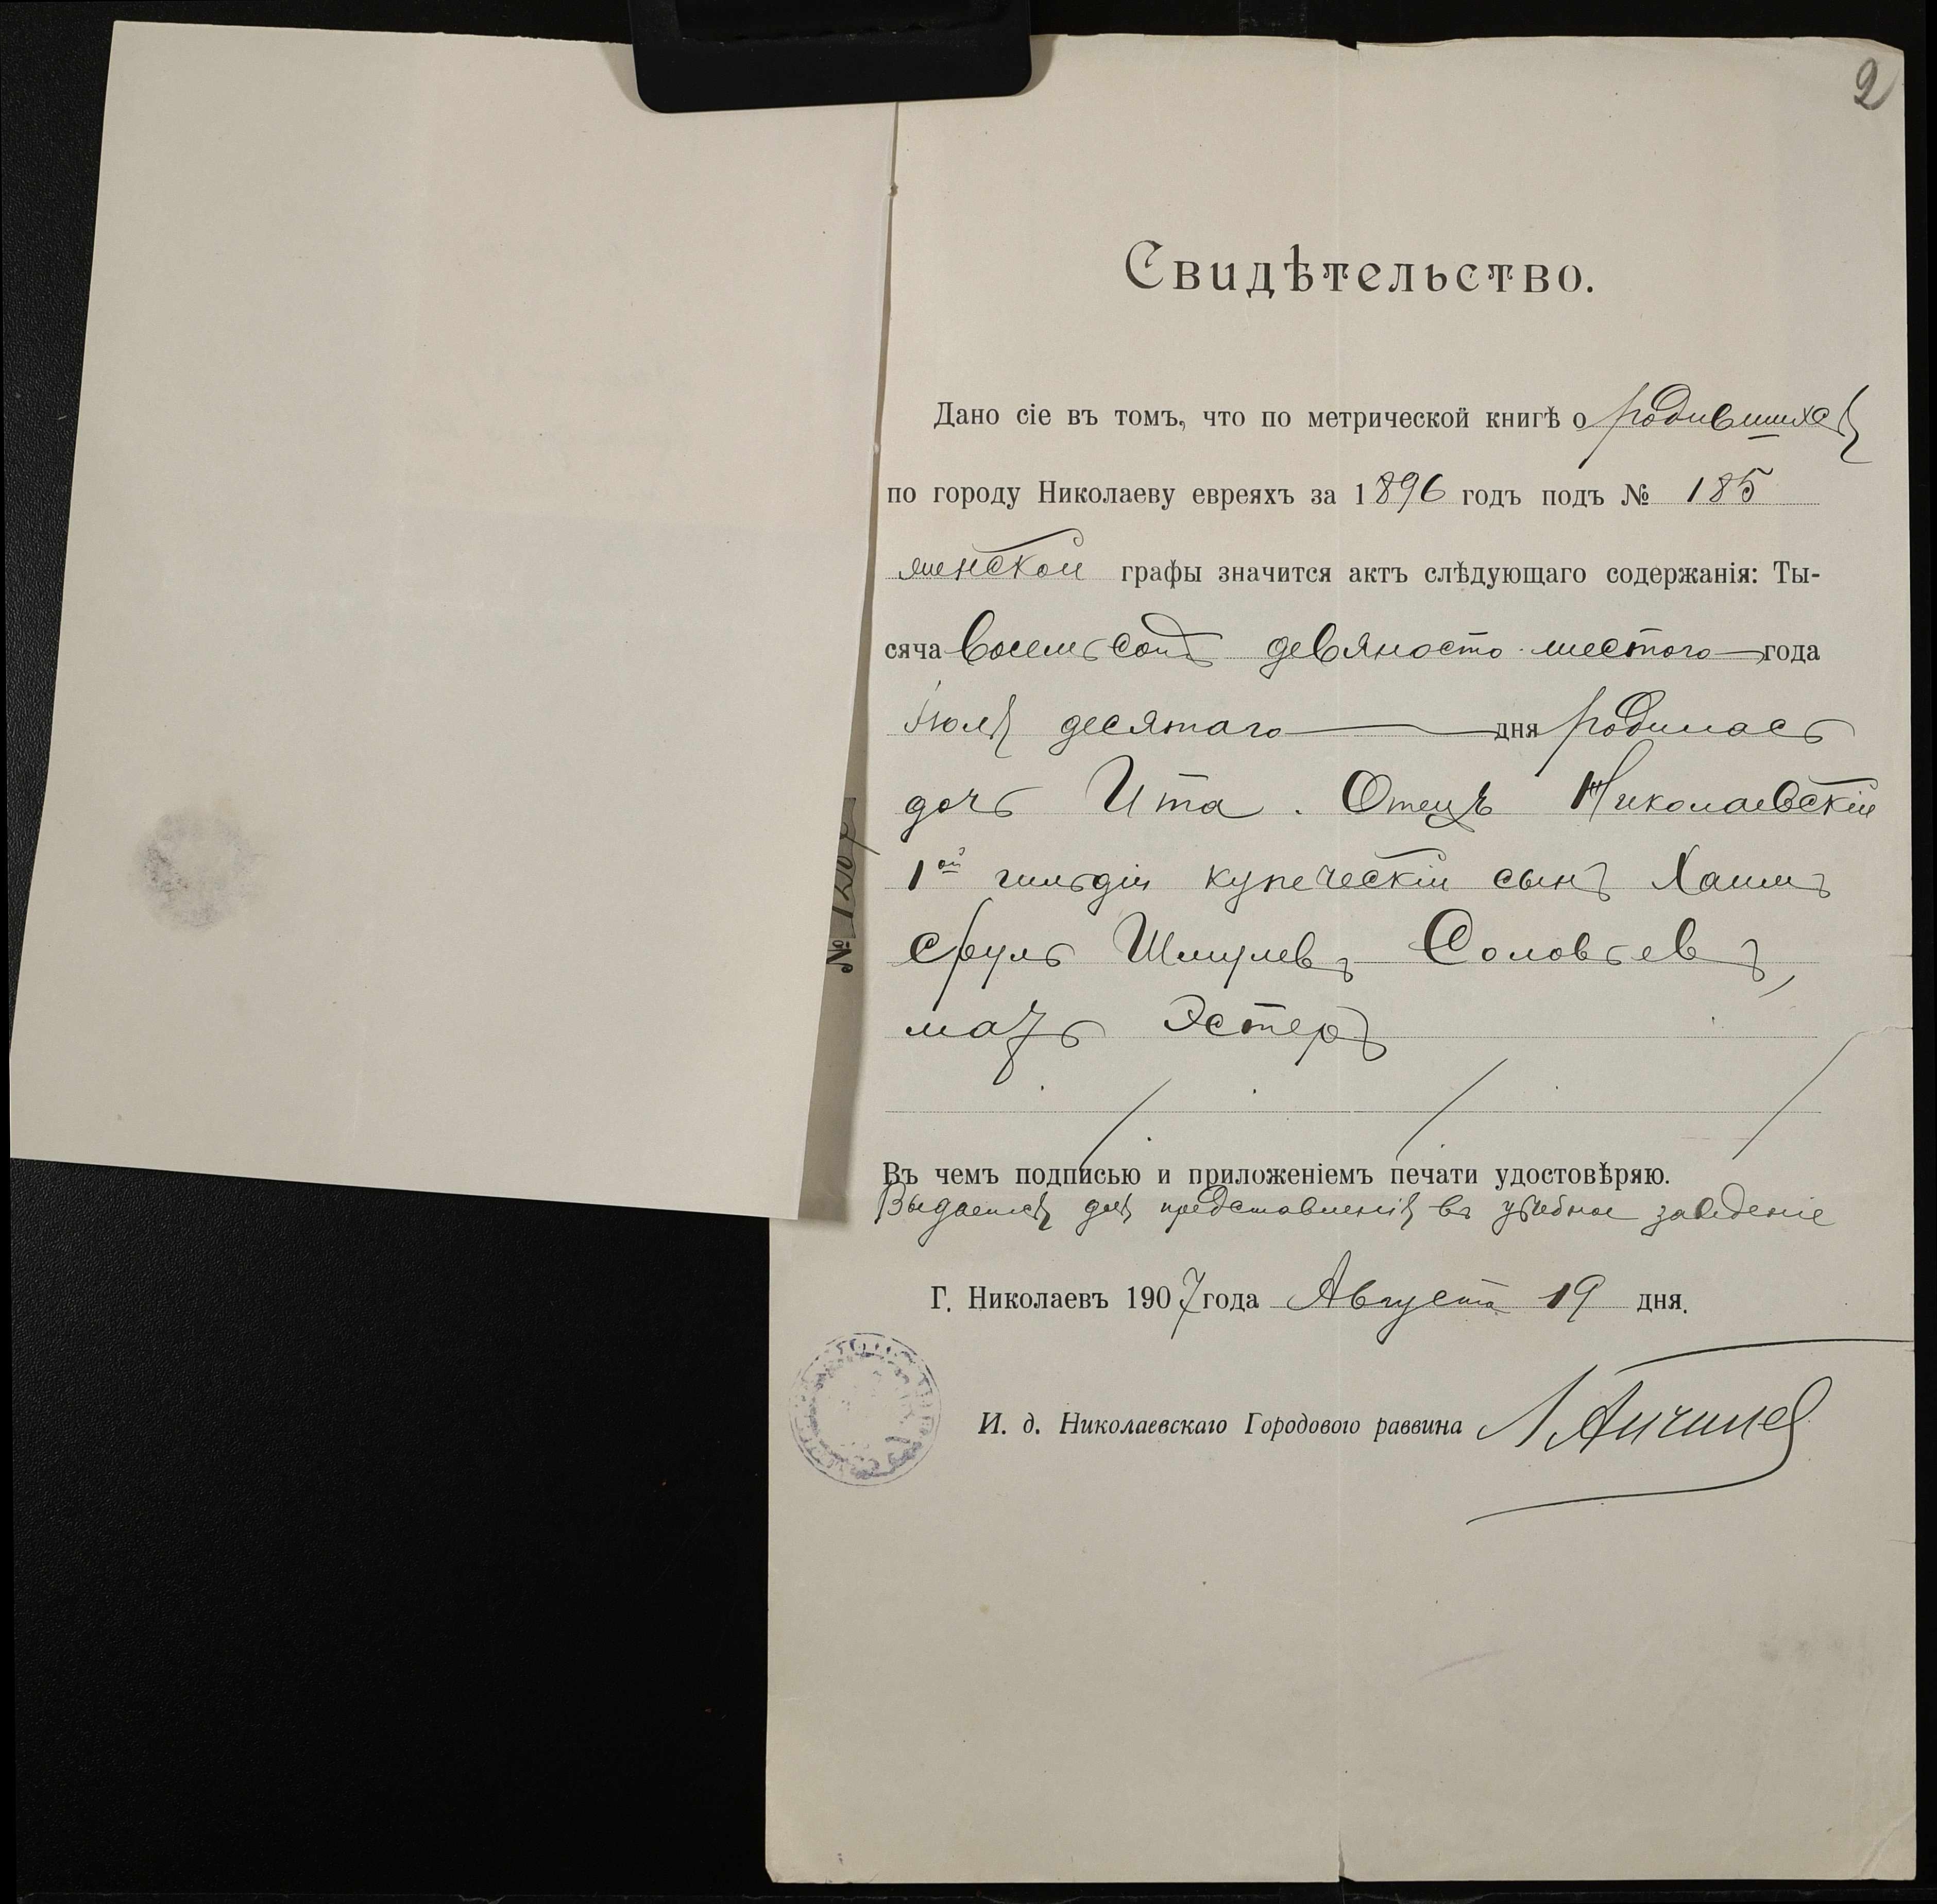 2
Свидѣтельство.
Дано сіе въ томъ, что по метрической книгѣ о родившихся
по городу Николаеву евреяхъ за 1896 годъ подъ № 185
женской графы значится актъ слѣдующаго содержанія: Ты-
сяча восемьсотъ девяносто шестого года
Іюля десятаго дня родилась
дочь Ита. Отецъ Николаевскій
1ой гильдіи купеческій сынъ Хаимъ
Сруль Шмулевъ Соловьевъ,
мать Эстеръ
Въ чемъ подписью и приложеніемъ печати удостовѣряю.
Выдается для представленія въ учебное заведеніе
Г. Николаевъ 1907 года Августа 19 дня.
И. д. Николаевскаго Городового раввина
№